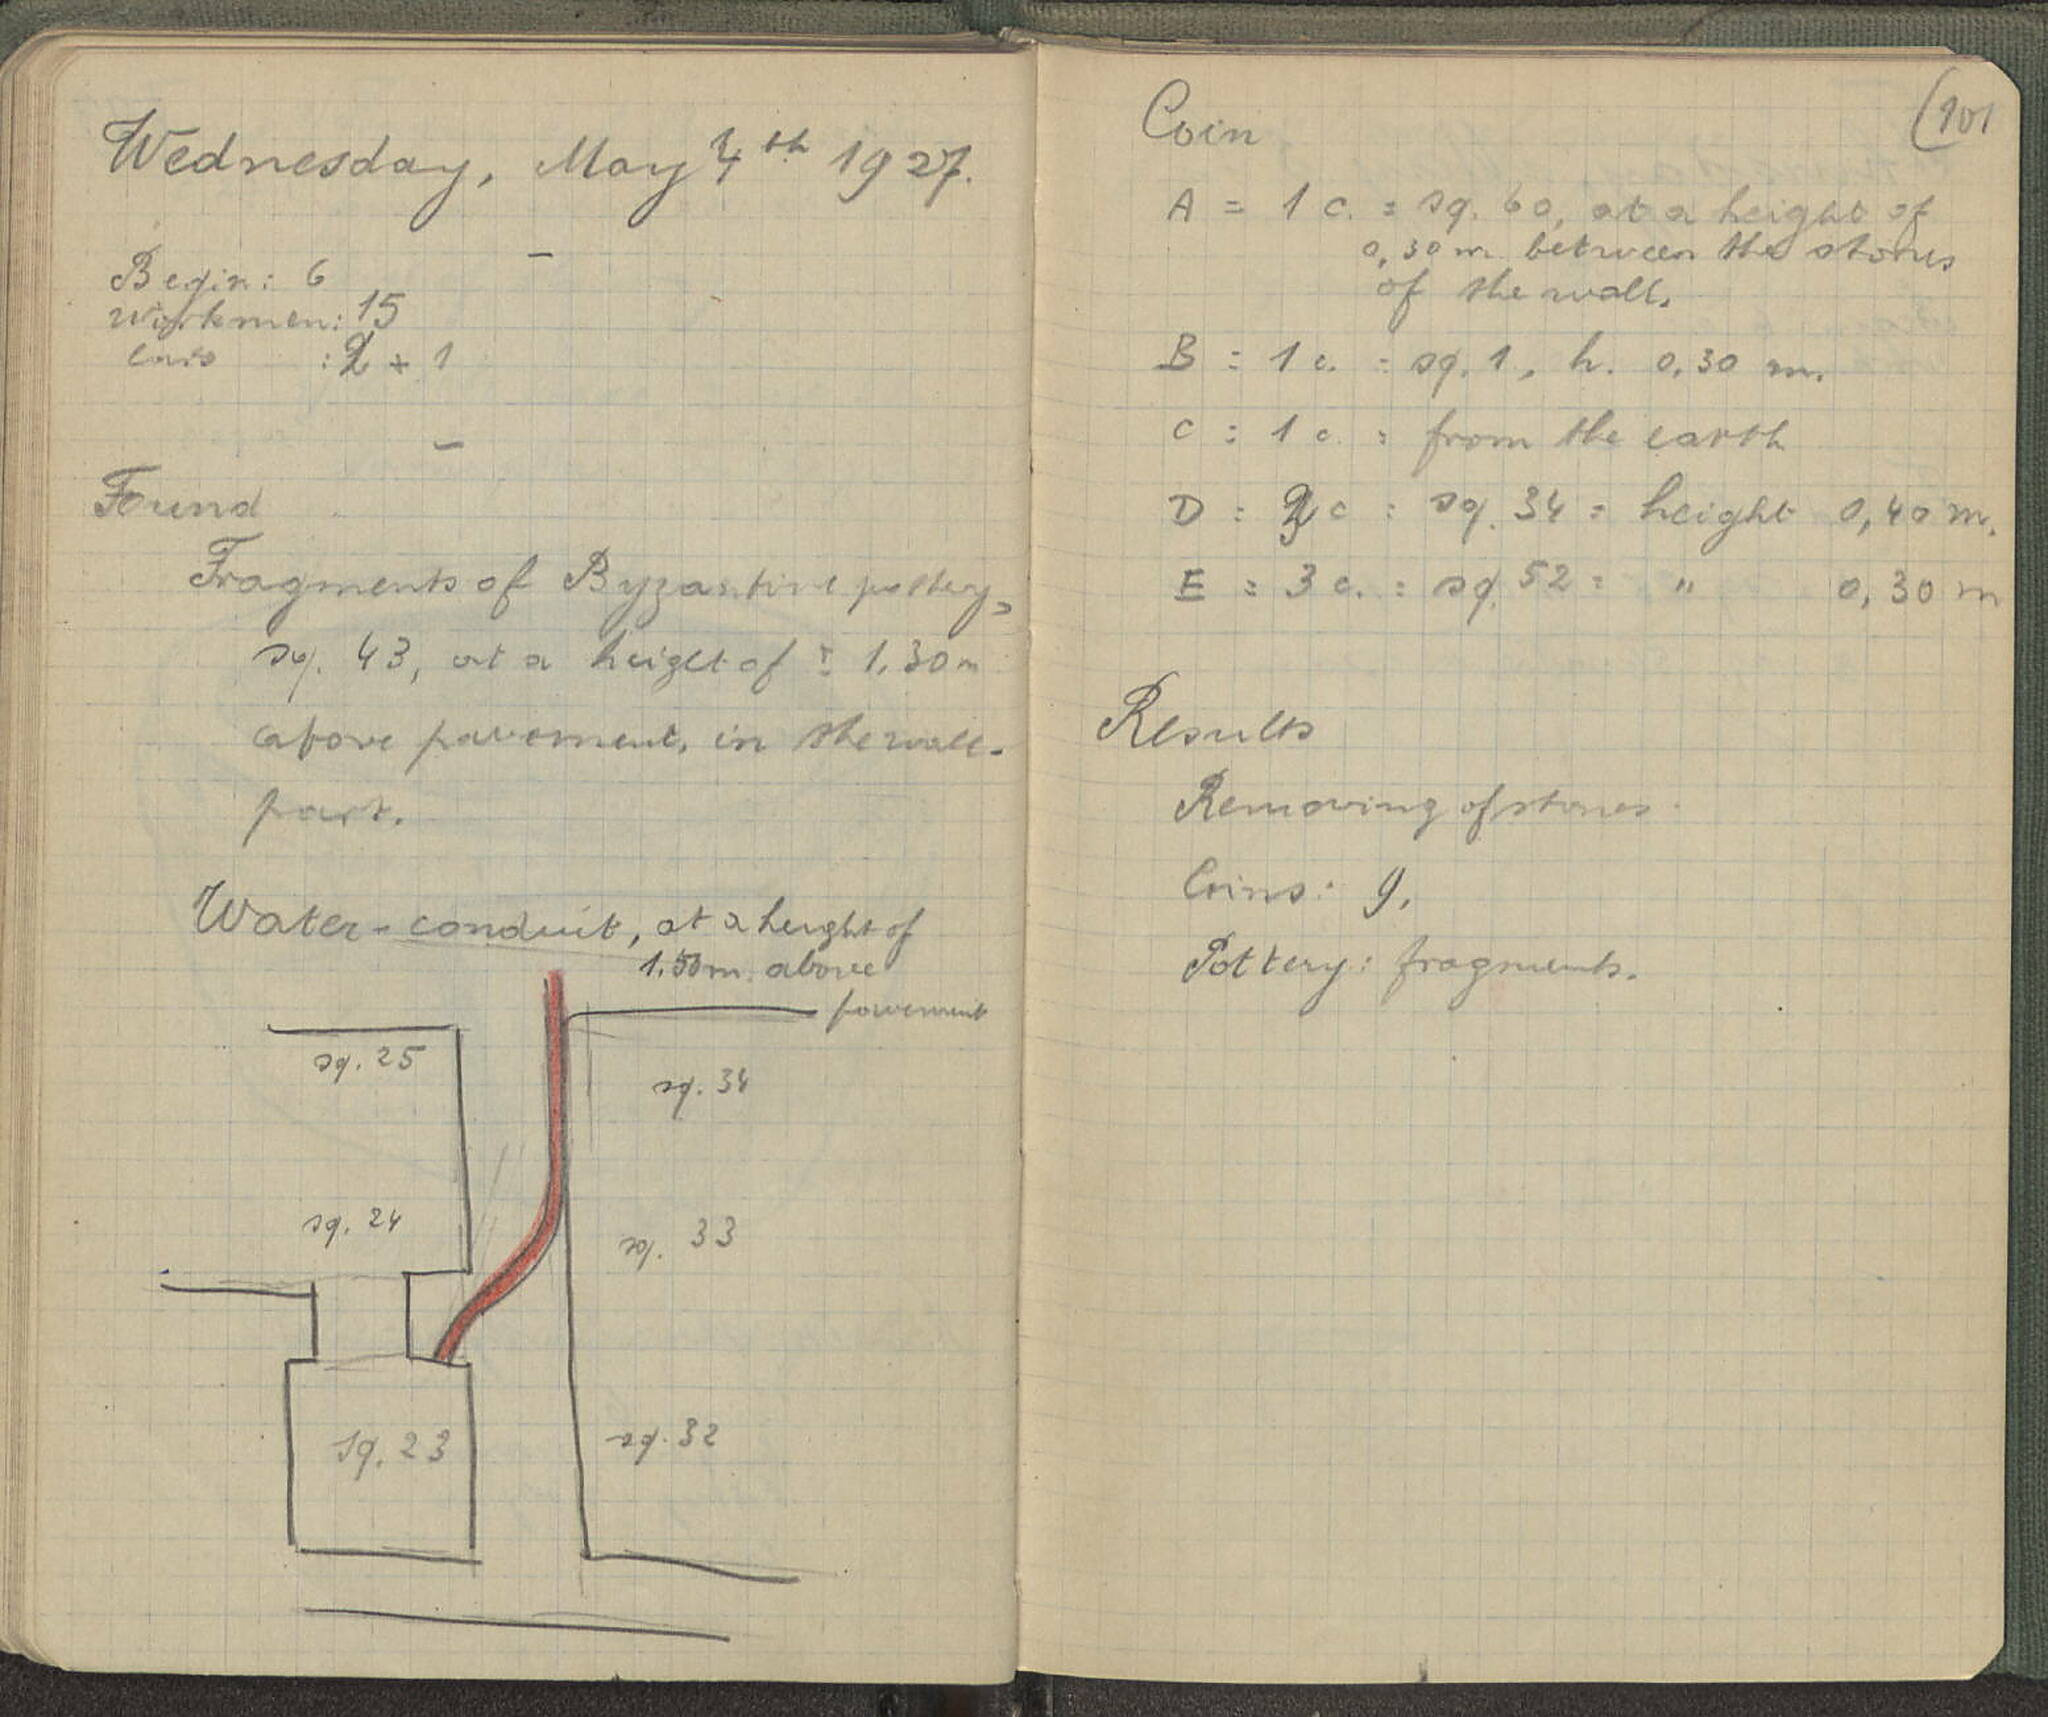 Wednesday, May 4th 1927.
Begin: 6
Workmen: 15
cars : 2 + 1
Found
Fragments of Byzantine pottery,
sq. 43, at a height of ± 1.30 m
above pavement, in the wall-
part.
Water-conduit, at a height of
1.50 m. above
pavement
sq. 25
sq. 34
sq. 24
sq. 33
sq. 23
sq. 32
(101
Coin
A = 1 c. = sq. 60, at a height of
0,30 m between the stones
of the wall.
B = 1 c. = sq. 1, h. 0,30 m.
C = 1 c. = from the earth
D = c = sq. 34 = height 0,40 m.
E = 3 c. = sq. 52 = " 0,30 m
Results
Removing of stones
Coins: 9.
Pottery: fragments.